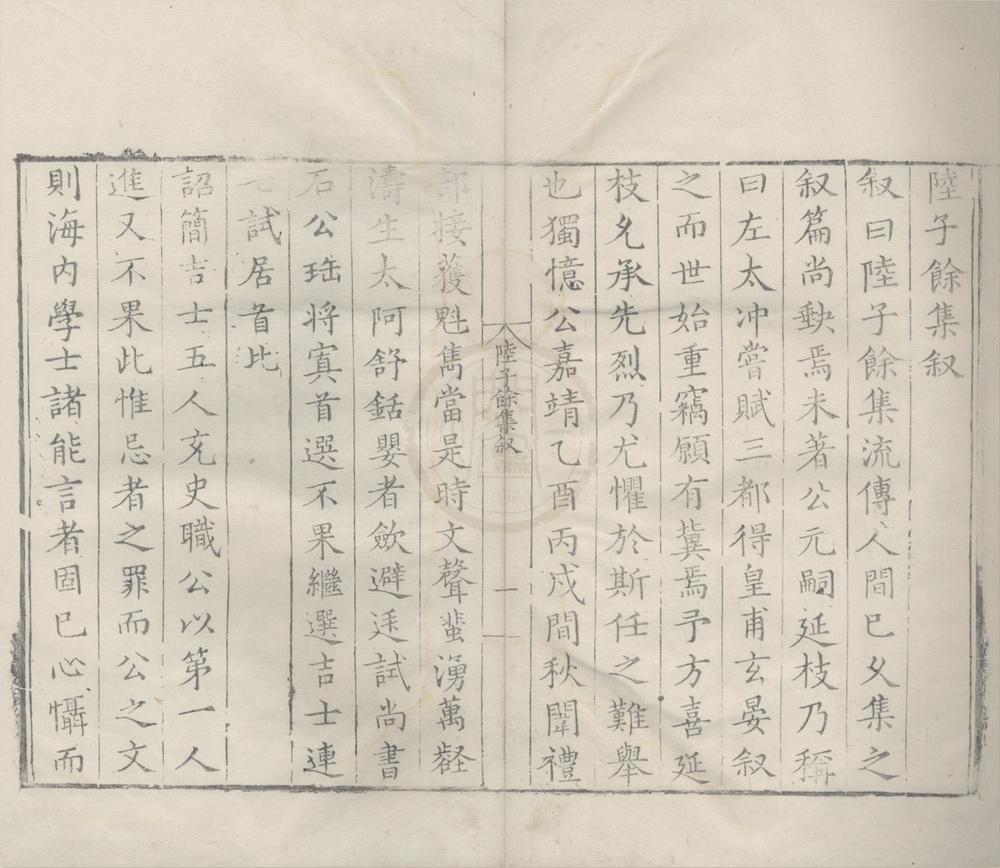 陸子餘集叙
叙曰陸子餘集流傳人間已久集之
叙篇尚䡖焉未著公元嗣延枝乃稱
曰左太冲嘗賦三都得皇甫玄晏叙
之而世始重竊願有冀焉予方喜延
枝允承先烈乃尤懼於斯任之難舉
也獨憶公嘉靖乙酉丙戌間秋闈禮
陸子餘集叙
一
部接蒦魁雋當是時文聲蜚湧萬壑
濤生太阿舒銛嬰者歛避迋試尚書
石公珤將寘首選不果繼選吉士連
七試居首比
詔簡吉士五人充史職公以第一人
進又不果此惟忌者之罪而公之文
則海内學士諸能言者固已心懾而